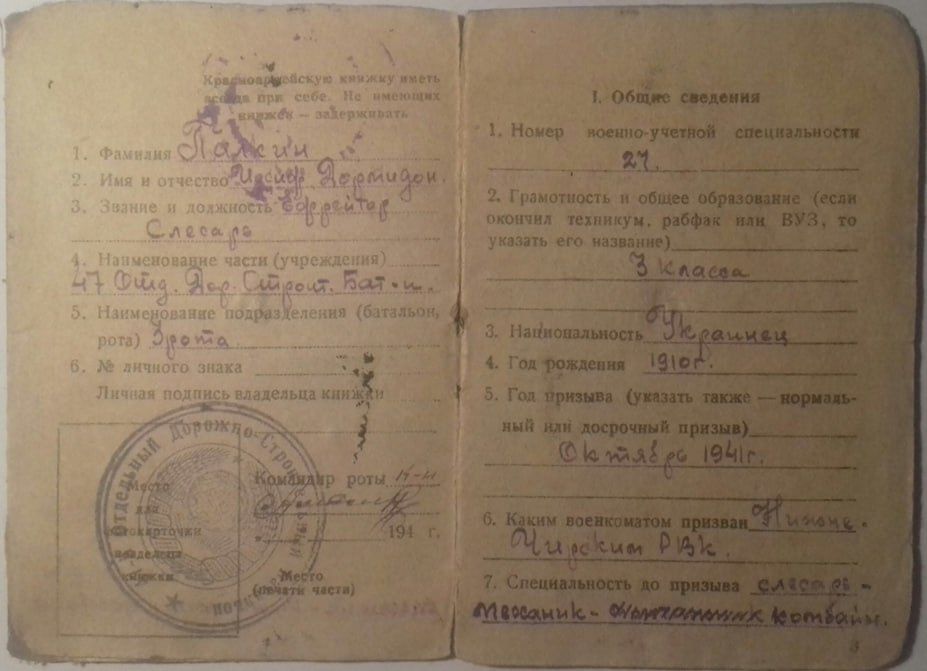 Красноармейскую книжку иметь
всегда при себе. Не имеющих
книжек — задерживать
1. Фамилия Палкин
2. Имя и отчество Иосиф Дормидон.
3. Звание и должность Ефрейтор
Слесарь
4. Наименование части (учреждения)
47 Отд. Дор. Строит. Бат-н.
5. Наименование подразделения (батальон,
рота) 3 рота
6. № личного знака
Личная подпись владельца книжки
Отдельный Дорожно-Строительный
Место
для
фотокарточки
владельца
книжки
Командир роты к-н
194 г.
Место
(печати части)
I. Общие сведения
1. Номер военно-учетной специальности
27.
2. Грамотность и общее образование (если
окончил техникум, рабфак или ВУЗ, то
указать его название)
3 класса
3. Национальность Украинец
4. Год рождения 1910г.
5. Год призыва (указать также — нормаль-
ный или досрочный призыв)
Октябрь 1941г.
6. Каким военкоматом призван Нижне-
Чирским РВК.
7. Специальность до призыва слесарь-
механик - комбайн.
3